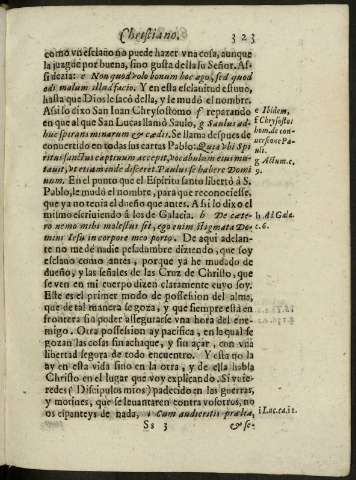 Chrestiano. 323
como vn esclauo no puede hazer vna cosa, aunque
la juzgue por buena, sino gusta della su Señor. As-
si dezia: e Non quod volo bonum hoc ago, sed quod
odi malum illud facio. Y en esta esclauitud estuuo,
hasta que Dios le sacò della, y le mudò el nombre.
Assi lo dixo San Iuan Chrysostomo f reparando
en que al que San Lucas llamò Saulo, g Saulus ad-
huc spirans minarum & cædis. Se llamo despues de
conuertido en todas sus cartas Pablo: Quia vbi Spi-
ritus sanctus captiuum accepit, vocabulum eius mu-
tauit, vt etiam ende disceret. Paulus se habere Domi-
num. En el punto que el Espiritu santo libertò à S.
Pablo, le mudò el nombre, para que reconociesse,
que ya no tenia el dueño que antes. A si lo dixo el
mismo escriuiendo à los de Galacia. h De cæte-
ro nemo mihi molestus sit, ego enim stigmata Do-
mini Iesu in corpore meo porto. De aqui adelan-
te no me dè nadie pesadumbre diziendo, que soy
esclauo como antes, porque ya he mudado de
dueño, y las señales de las Cruz de Christo, que
se ven en mi cuerpo dizen claramente cuyo soy.
Este es el primer modo de possession del alma,
que de tal manera se goza, y que siempre està en
frontera sin poder assegurarse vna hora del ene-
migo. Otra possession ay pacifica, en la qual se
gozan las cosas sin achaque, y sin açar, con vna
libertad segora de todo encuentro. Y esta no la
ay en esta vida sino en la otra, y de ella habla
Christo en el lugar que voy explicando. Si viere-
redes (Discipulos mios) padecido en las guerras,
y motines, que se leuantaren contra vosotros, no
os espanteys de nada, i Cum audieritis prælia,
Ss 3 & se-
e Ibidem.
f Chrysost
hom. de con-
uersione Pau-
li.
g Actum. c.
9.
h Ad Gala.
c. 6.
i Luc. ca. 21.